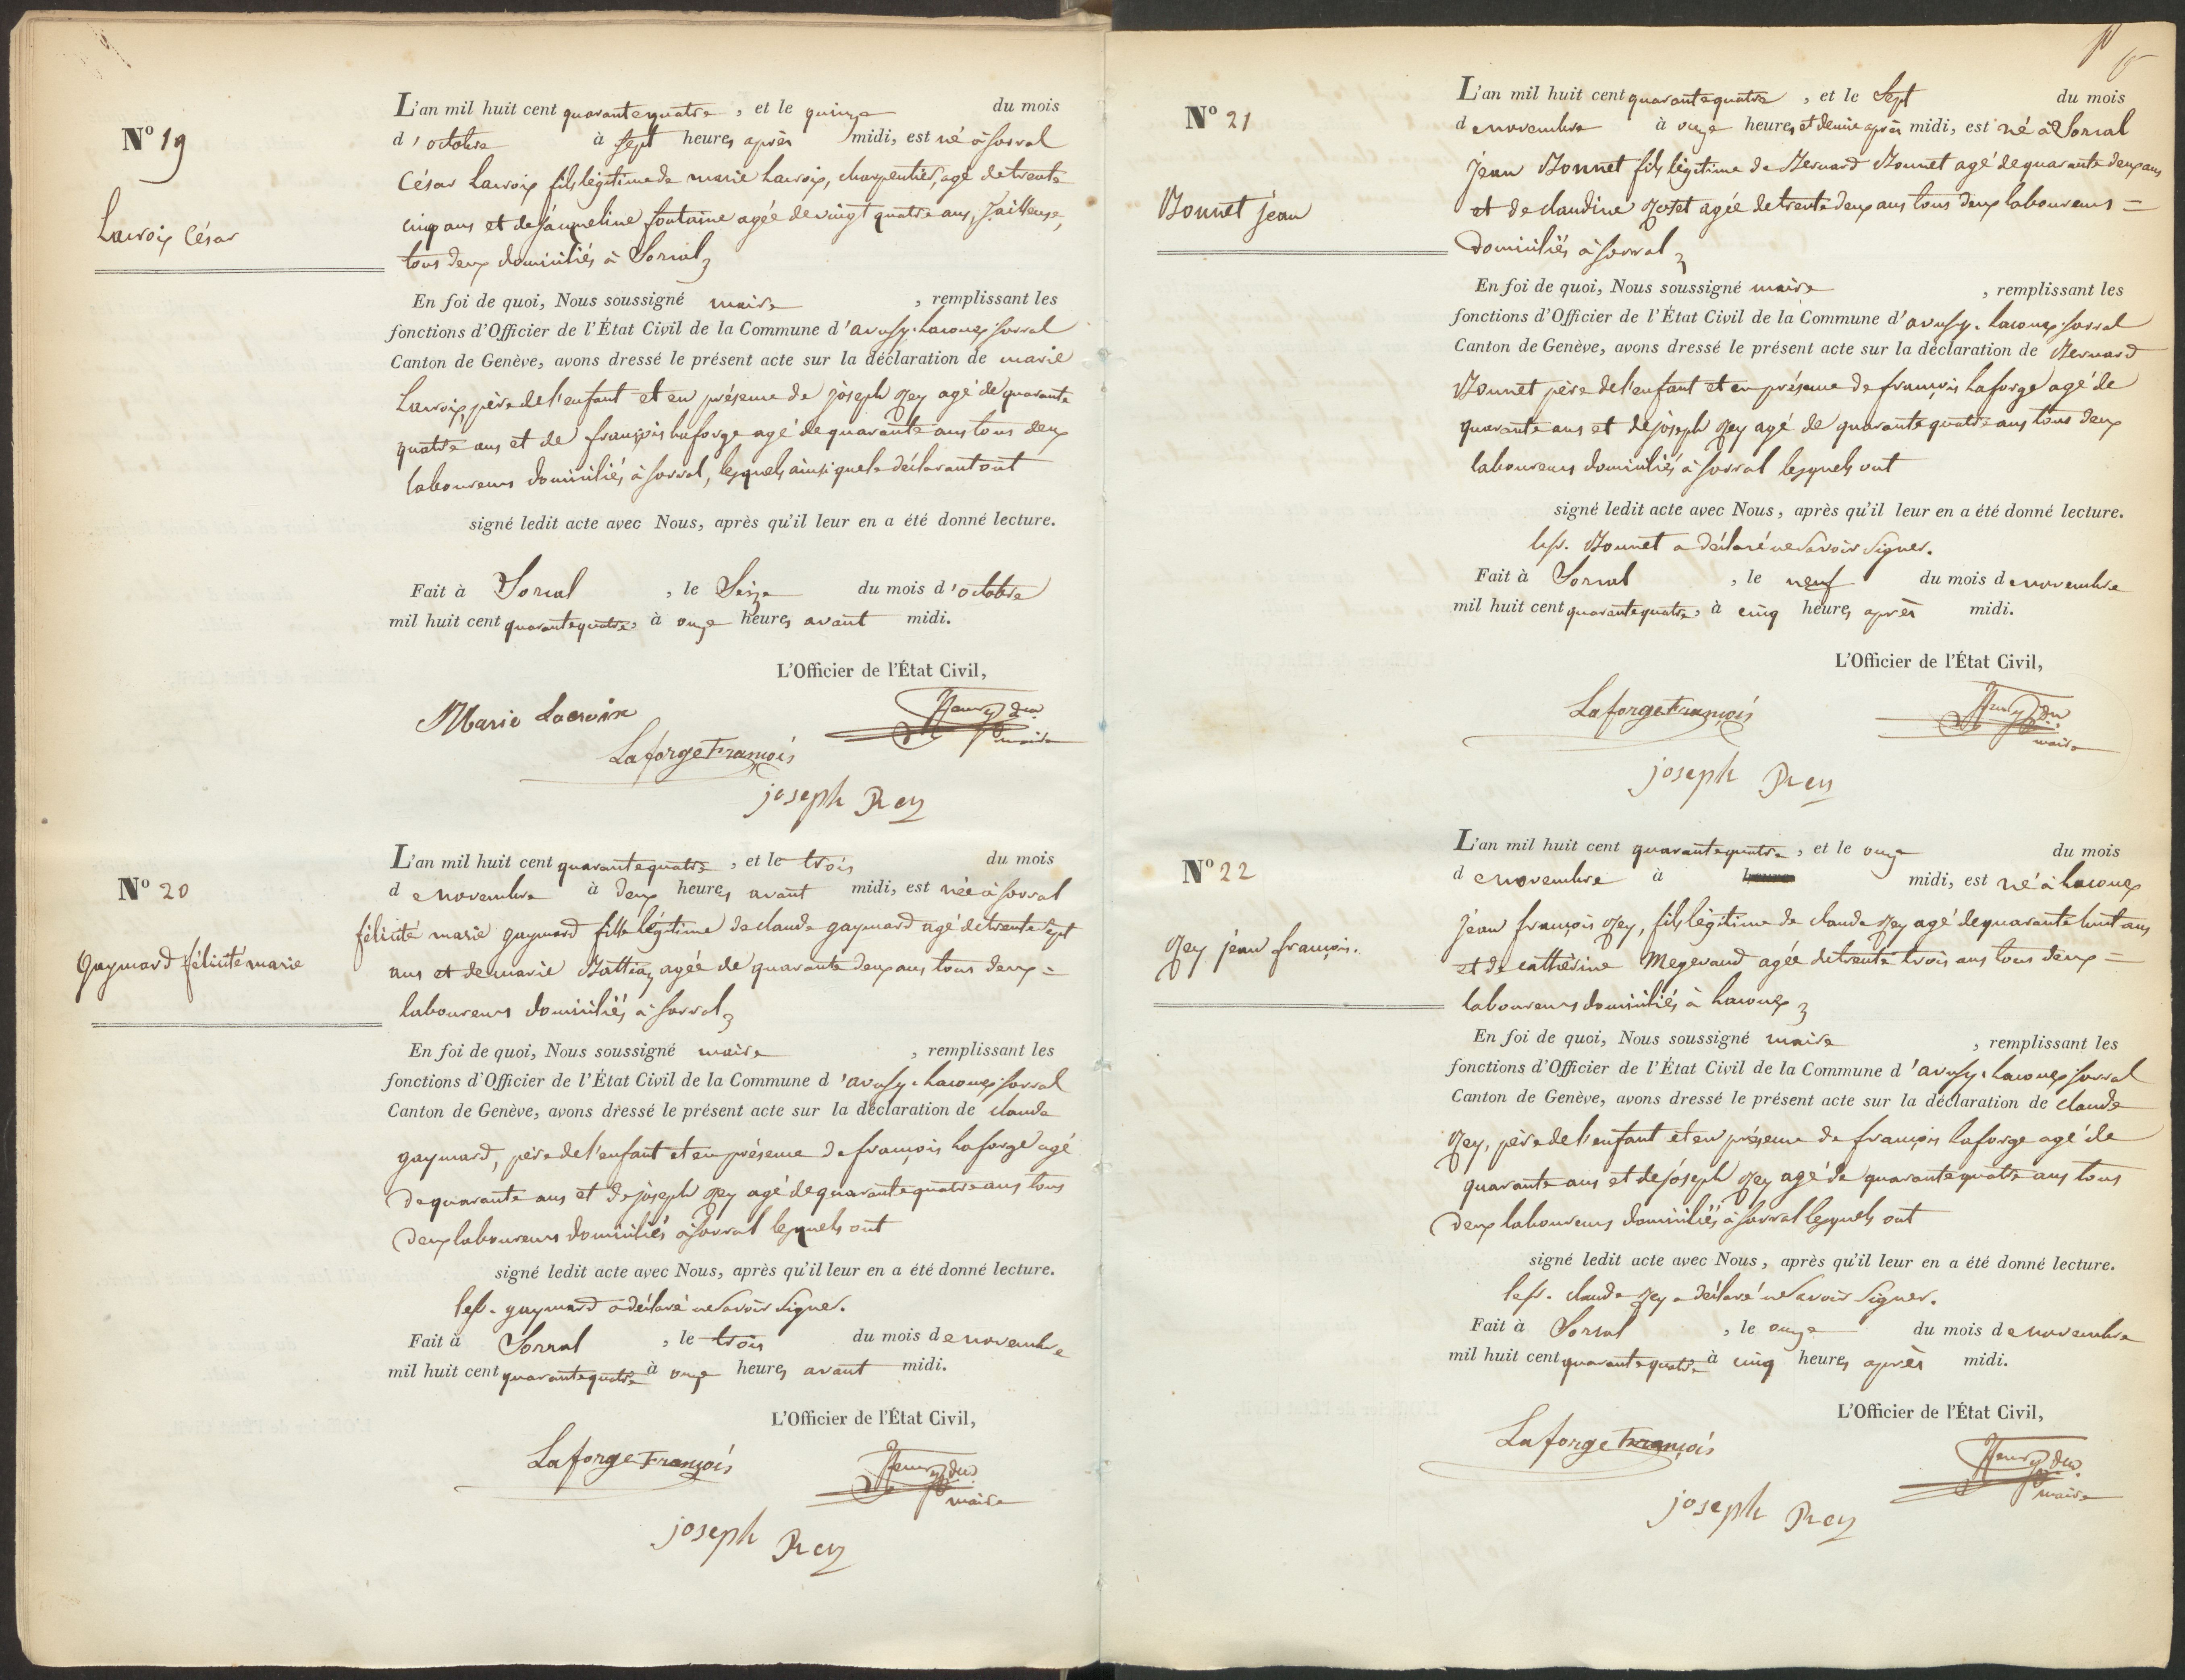 No 19
Lacroix César
L'an mil huit cent quarante quatre, et le quinze du mois
d'octobre à sept heures après midi, est né à Sorral
César Lacroix fils légitime de marie Lacroix, charpentier, agé de trente
cinq ans et de Jacqueline fontaine agée de vingt quatre ans,
tous deux domiciliés à Sorral
En foi de quoi, Nous soussigné maire, remplissant les
fonctions d'Officier de l'État Civil de la Commune d'avusy-Laconex-Sorral
Canton de Genève, avons dressé le présent acte sur la déclaration de marie
Lacroix, père de l'enfant et en présence de joseph Rey agé de quarante
quatre ans et de françois Laforge agé de quarante ans tous deux
laboureurs domiciliés à sorral, lesquels ainsi que le déclarant ont
signé ledit acte avec Nous, après qu'il leur en a été donné lecture.
Fait à Sorral, le Seize du mois d'octobre
mil huit cent quarante quatre, à onze heures avant midi.
L'Officier de l'État Civil,
Marie Lacroix
maire
Laforge François
joseph Rey
No 20
Gaymard félicité marie
L'an mil huit cent quarante quatre, et le trois du mois
de novembre à deux heures avant midi, est née à sorral
félicité marie gaymard fille légitime de claude gaymard agé de trente sept
ans et de marie Battiaz agée de quarante deux ans tous deux =
laboureurs domiciliés à sorral
En foi de quoi, Nous soussigné maire, remplissant les
fonctions d'Officier de l'État Civil de la Commune d'avusy-Laconex-Sorral
Canton de Genève, avons dressé le présent acte sur la déclaration de claude
gaymard, père de l'enfant et en présence de françois Laforge agé
de quarante ans et de joseph Rey agé de quarante quatre ans tous
deux laboureurs domiciliés à sorral lesquels ont
signé ledit acte avec Nous, après qu'il leur en a été donné lecture.
le sr. gaymard a déclaré ne savoir signer.
Fait à Sorral, le trois du mois de novembre
mil huit cent quarante quatre à onze heures avant midi.
L'Officier de l'État Civil,
Laforge François
maire
joseph Rey
No 21
Bonnet jean
L'an mil huit cent quarante quatre, et le Sept du mois
de novembre à onze heures et demie après midi, est né à Sorral
Jean Bonnet fils légitime de Bernard Bonnet agé de quarante deux ans
et de claudine Rozet agée de trente deux ans tous deux laboureurs =
domiciliés à sorral
En foi de quoi, Nous soussigné maire, remplissant les
fonctions d'Officier de l'État Civil de la Commune d'avusy-Laconex-Sorral
Canton de Genève, avons dressé le présent acte sur la déclaration de Bernard
Bonnet père de l'enfant et en présence de françois Laforge agé de
quarante ans et de joseph Rey agé de quarante quatre ans tous deux
laboureurs domiciliés à sorral lesquels ont
signé ledit acte avec Nous, après qu'il leur en a été donné lecture.
le sr. Bonnet a déclaré ne savoir signer.
Fait à Sorral, le neuf du mois de novembre
mil huit cent quarante quatre, à cinq heures après midi.
L'Officier de l'État Civil,
Laforge François
maire
joseph Rey
No 22
Rey jean françois.
L'an mil huit cent quarante quatre, et le onze du mois
de novembre à midi, est né à Laconex
Jean françois Rey, fils légitime de claude Rey agé de quarante huit ans
et de cathérine Megevand agée de trente trois ans tous deux =
laboureurs domiciliés à Laconex
En foi de quoi, Nous soussigné maire, remplissant les
fonctions d'Officier de l'État Civil de la Commune d'avusy-Laconex-Sorral
Canton de Genève, avons dressé le présent acte sur la déclaration de claude
Rey, père de l'enfant et en présence de françois Laforge agé de
quarante ans et de joseph Rey agé de quarante quatre ans tous
deux laboureurs domiciliés à sorral lesquels ont
signé ledit acte avec Nous, après qu'il leur en a été donné lecture.
le sr. claude Rey a déclaré ne savoir signer.
Fait à Sorral, le onze du mois de novembre
mil huit cent quarante quatre à cinq heures après midi.
L'Officier de l'État Civil,
Laforge François
maire
joseph Rey